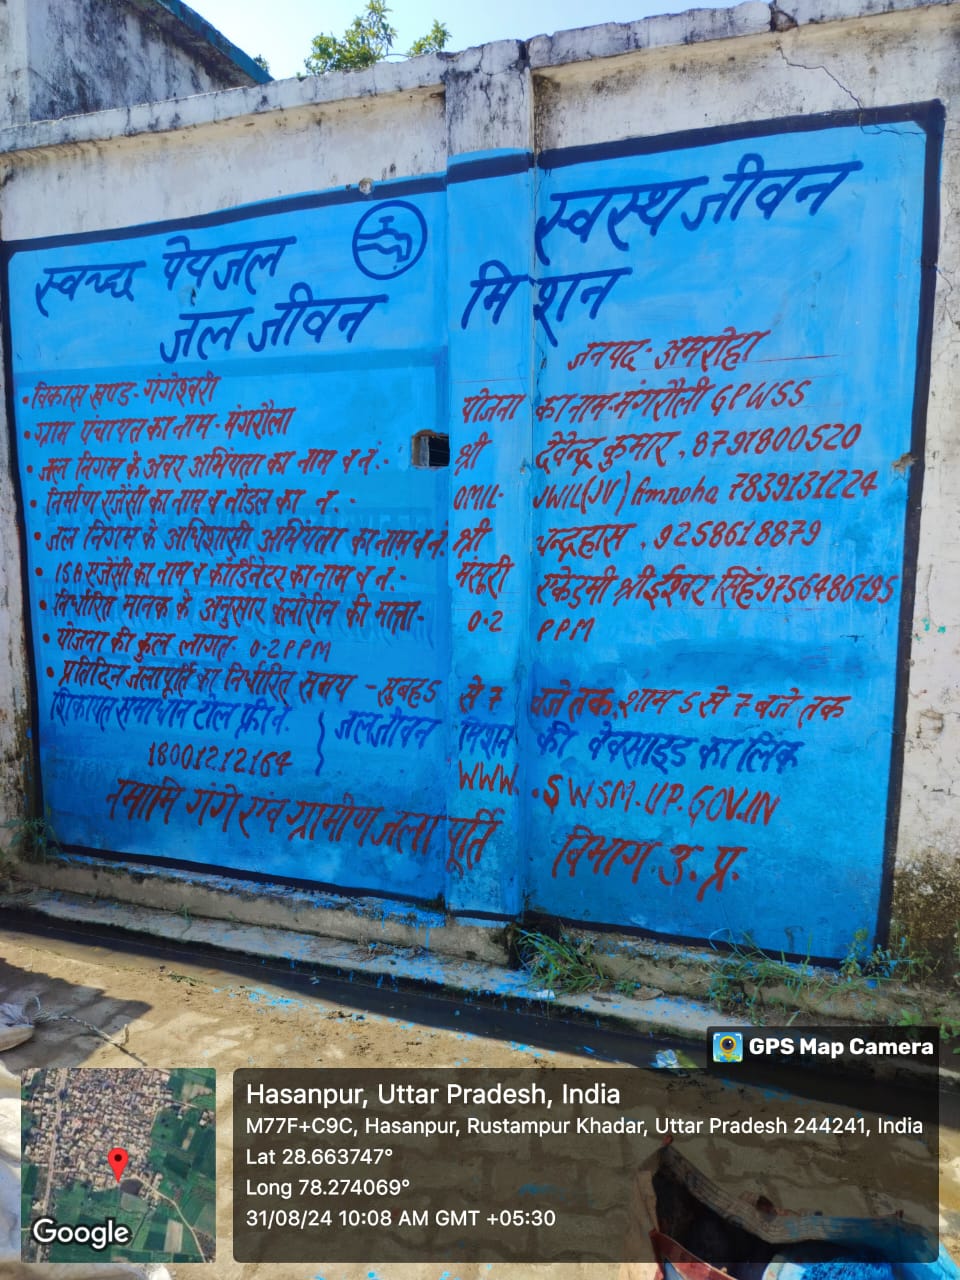 स्वच्छ पेयजल स्वस्थ जीवन
जल जीवन मिशन
जनपद - अमरोहा
• विकास खण्ड - गंगेश्वरी
योजना का नाम - मंगरौली GPWSS
• ग्राम पंचायत का नाम - मंगरौला
• जल निगम के अवर अभियंता का नाम व नं. :- श्री देवेन्द्र कुमार, 8791800520
• निर्माण एजेंसी का नाम व नोडल का नं. :- OMIL- JWIL(JV) Amroha 7839131224
• जल निगम के अधिशासी अभियंता का नाम व नं. श्री चन्द्रहास, 9258618879
• ISA एजेंसी का नाम व कोर्डिनेटर का नाम व नं. :- मंसूरी एकेडमी श्री ईश्वर सिंह 9756486195
• निर्धारित मानक के अनुसार क्लोरीन की मात्रा - 0.2 PPM
• योजना की कुल लागत- 0.2 PPM
• प्रतिदिन जलापूर्ति का निर्धारित समय - सुबह 5 से 7 बजे तक, शाम 5 से 7 बजे तक
शिकायत समाधान टोल फ्री नं. } जल जीवन मिशन की वेबसाइड का लिंक
18001212164 WWW. .SWSM.UP.GOV.IN
नमामि गंगे एंव ग्रामीण जला पूर्ति विभाग उ.प्र.
GPS Map Camera
Hasanpur, Uttar Pradesh, India
M77F+C9C, Hasanpur, Rustampur Khadar, Uttar Pradesh 244241, India
Lat 28.663747°
Long 78.274069°
31/08/24 10:08 AM GMT +05:30
Google